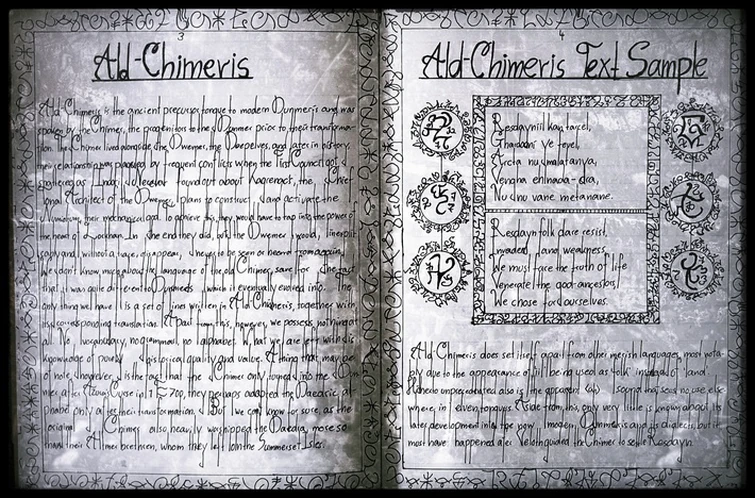 3
Ald-Chimeris
Ald Chimeris is the ancient precursor tongue to modern Dunmeris and was
spoken by the Chimer, the progenitors to the Dunmer prior to their transforma-
tion. The Chimer lived alongside the Dwemer, the Deepelves, and later in history,
their relationship was plagued by frequent conflicts when the First Council of
gathered as Indoril Nerevar found out about Kagrenact, the Chief
tonal Architect of the Dwemer, plans to construct and activate the
their mechanical god. To achieve this, they would have to tap into the power of
the heart of Lorkhan. In the end they did, but the Dwemer
and without a trace, disappear, never to be seen or heard from again.
We don't know much about the language of the old Chimer, save for the fact
that it was quite different to Dunmeris, which it eventually evolved into. The
only thing we have it is a set of lines written in Ald Chimeris, together with
its corresponding translation. Apart from this, however, we possess nothing at
all. No vocabulary, no grammar, no alphabet. What we are left with is
knowledge of poor historical quality and value. A thing that may be
of note, however, is the fact that the Chimer only turned into the Dun-
mer after Azura's Curse in 1E 700, they perhaps adapted the Daedric al-
phabet only after their transformation. But we can't know for sure, as the
original Chimer also heavily worshipped the Daedra, more so
than their Altmer brethren, whom they left from the Summerset Isles.
4
Ald-Chimeris Text Sample
Resdayniil kan tarcel,
Ghandni ye feyel,
Arcta nu malatanya,
Vengha ehlnada-dra,
Nu chu vane metanane.
Resdaynfolk dare resist,
Invaded land weakness,
We must face the truth of life
Venerate the good ancestors,
We chose for ourselves.
Ald Chimeris does set itself apart from other merish languages, most nota-
bly due to the appearance of "iil" being used as "folk" instead of "land".
Where unprecedented also is the apparent sound that sees no use else
where, in elven tongues. Aside from this, only very little is known about its
later development into the now modern Dunmeris and its dialects, but it
must have happened after Veloth guided the Chimer to settle Resdayn.